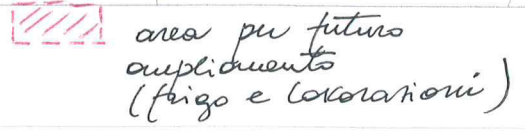 area per futuro
ampliamento
(frigo e lavorazioni)